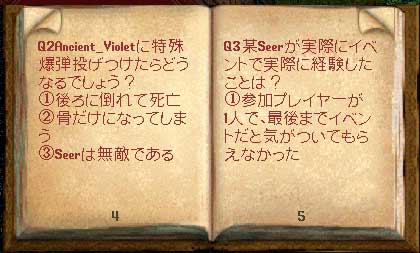 Q2Ancient_Violetに特殊
爆弾投げつけたらどう
なるでしょう？
①後ろに倒れて死亡
②骨だけになってしま
う
③Seerは無敵である
4
Q3某Seerが実際にイベ
ントで実際に経験した
ことは？
①参加プレイヤーが
1人で、最後までイベン
トだと気がついてもら
えなかった
5